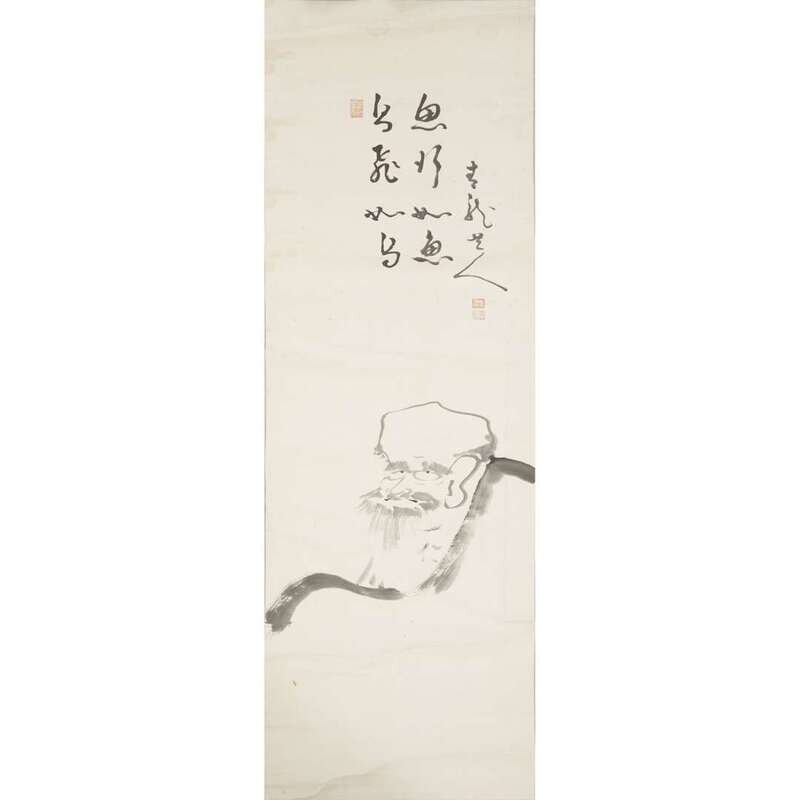 鳥飛如鳥
魚行如魚
青龍人